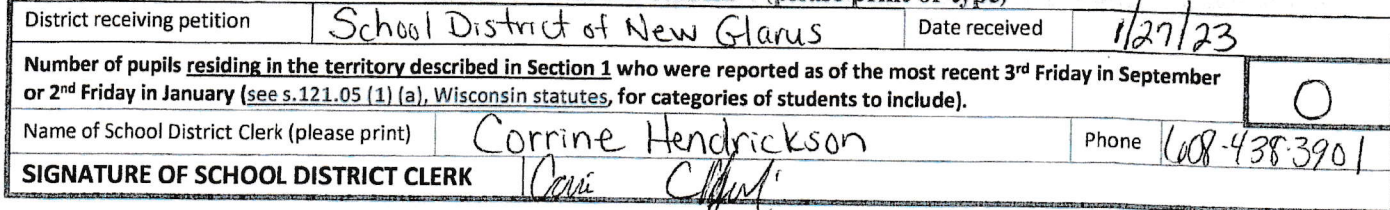 District receiving petition School District of New Glarus Date received 1/27/23
Number of pupils residing in the territory described in Section 1 who were reported as of the most recent 3rd Friday in September
or 2nd Friday in January (see s.121.05 (1) (a), Wisconsin statutes, for categories of students to include). 0
Name of School District Clerk (please print) Corrine Hendrickson Phone 608-438-3901
SIGNATURE OF SCHOOL DISTRICT CLERK